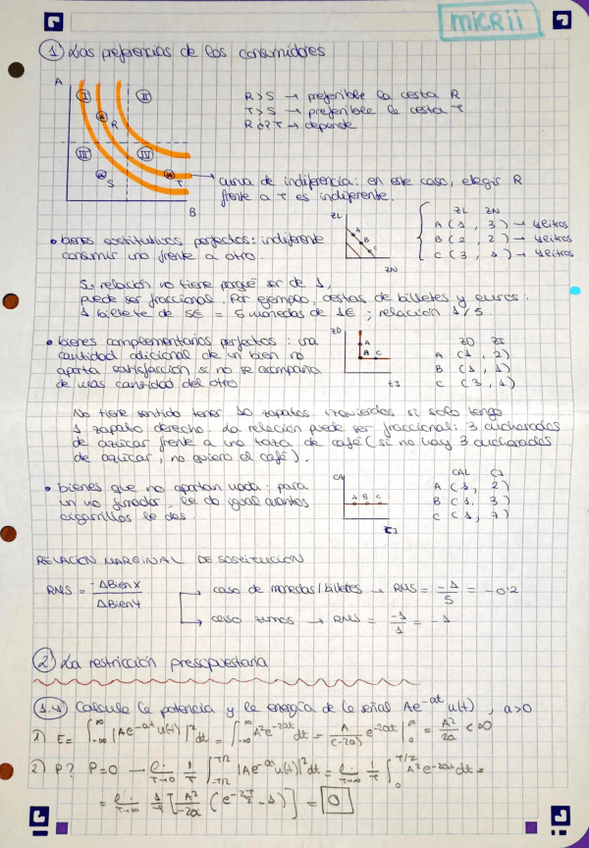 MICRII
1 Las preferencias de los consumidores
A
I
II
III
IV
R
S
T
B
R>S → preferible la cesta R
T>S → preferible la cesta T
R ó ? T → depende
curva de indiferencia: en este caso, elegir R
frente a T es indiferente.
• bienes sustitutivos perfectos: indiferente
consumir uno frente a otro.
ZL
A
B
C
ZN
ZL ZN
A (1, 3) → 4 litros
B (2, 2) → 4 litros
C (3, 1) → 4 litros
Su relación no tiene porqué ser de 1,
puede ser fraccional. Por ejemplo, cestas de billetes y euros:
1 billete de 5€ = 5 monedas de 1€ ; relación 1/5.
• bienes complementarios perfectos: una
cantidad adicional de un bien no
aporta satisfacción si no se acompaña
de más cantidad del otro
ZD
A
B C
ZI
ZD ZI
A (1, 2)
B (1, 1)
C (3, 1)
No tiene sentido tener 10 zapatos izquierdos si solo tengo
1 zapato derecho. La relación puede ser fraccional: 3 cucharadas
de azúcar frente a una taza de café (si no hay 3 cucharadas
de azúcar, no quiero el café).
• bienes que no aportan nada: para
un no fumador, le da igual cuantos
cigarrillos le des
CAL
A B C
CJ
CAL CJ
A (1, 2)
B (1, 3)
C (1, 7)
RELACIÓN MARGINAL DE SUSTITUCIÓN
RMS = -ΔBien X / ΔBien Y
caso de monedas/billetes → RMS = -1/5 = -0'2
caso zumos → RMS = -1/1 = -1
2 La restricción presupuestaria
1.4 Calcula la potencia y la energía de la señal Ae^-at u(t), a>0
1) E = ∫_-∞^∞ |Ae^-at u(t)|² dt = ∫_-∞^∞ A² e^-2at dt = A/(-2a) e^-2at |_0^∞ = A²/2a < ∞
2) P? P=0 → ℓ. T→∞ 1/T ∫_-T/2^T/2 |Ae^-at u(t)|² dt = ℓ. T→∞ 1/T ∫_0^T/2 A² e^-2at dt =
= ℓ. T→∞ 1/T [A²/-2a (e^-2T/2 - 1)] = 0